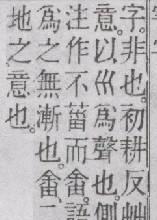 字。非也。初耕反艸
意。以巛爲聲也。側
注作不菑而畬。語
爲之無漸也。畬二
地之意也。